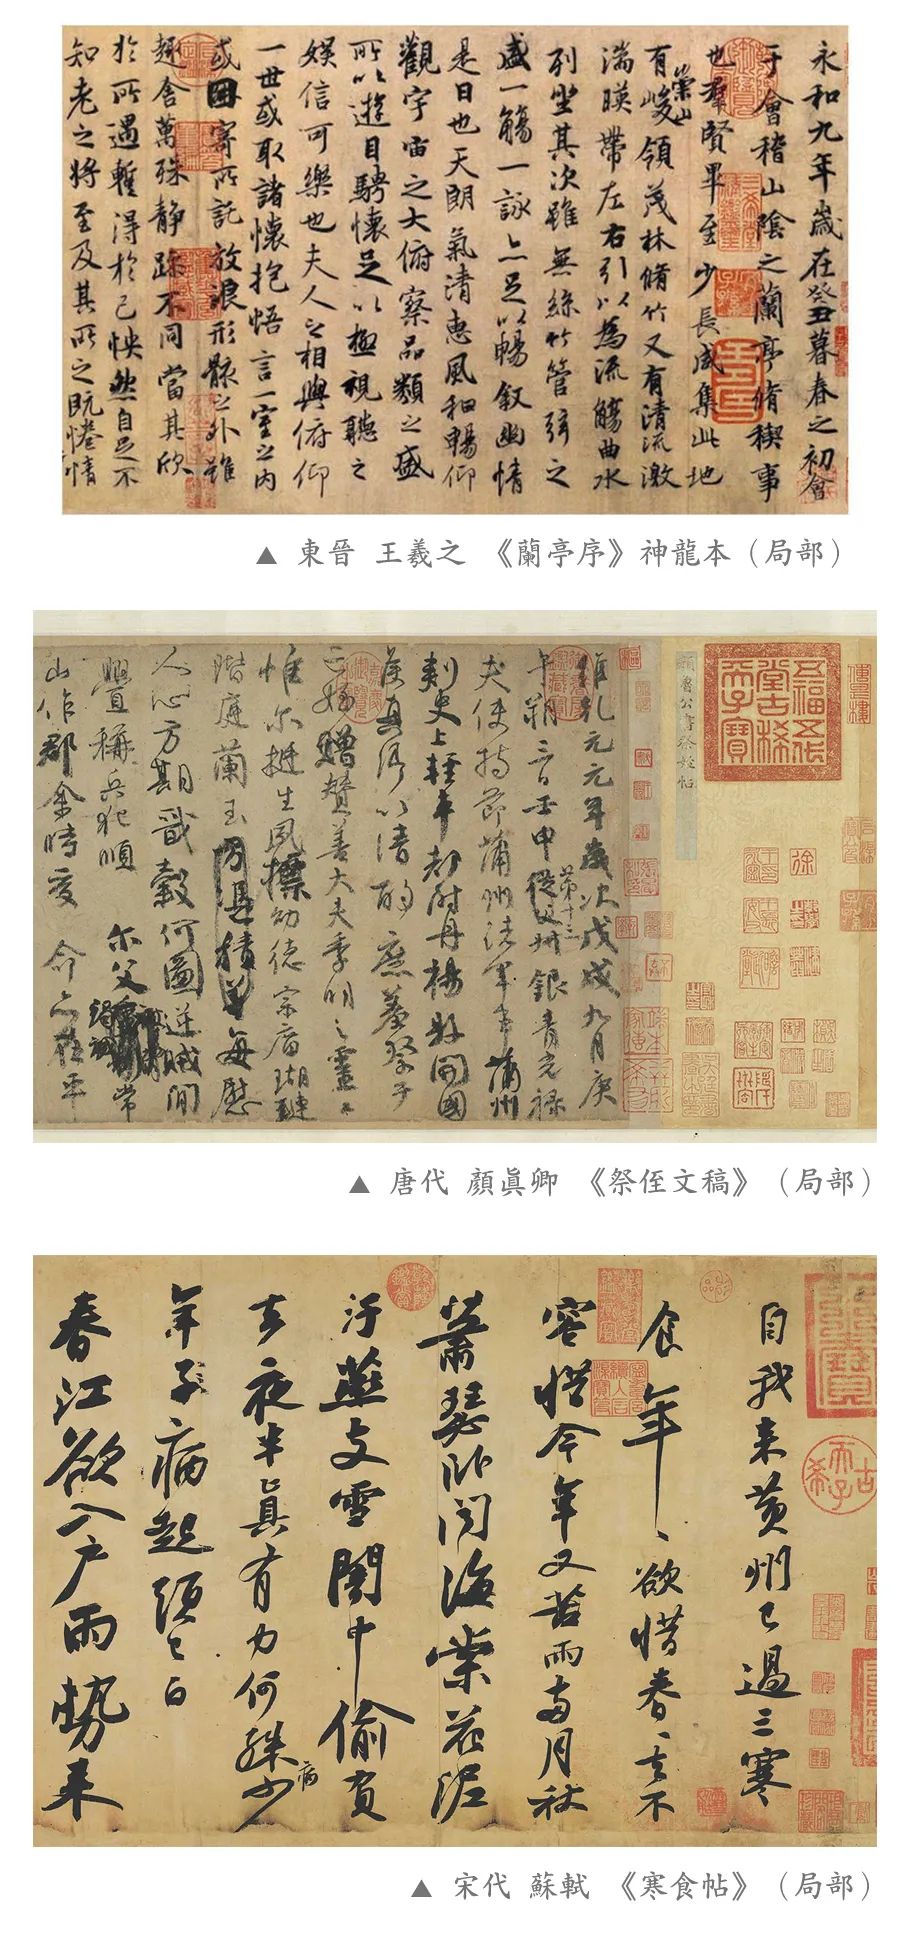 永和九年歲在癸丑暮春之初會
于會稽山陰之蘭亭脩稧事
也羣賢畢至少長咸集此地
有崇山峻領茂林脩竹又有清流激
湍暎帶左右引以為流觴曲水
列坐其次雖無絲竹管弦之
盛一觴一詠亦足以暢叙幽情
是日也天朗氣清惠風和暢仰
觀宇宙之大俯察品類之盛
所以遊目騁懷足以極視聽之
娛信可樂也夫人之相與俯仰
一世或取諸懷抱悟言一室之內
或因寄所託放浪形骸之外雖
趣舍萬殊靜躁不同當其欣
於所遇暫得於己怏然自足不
知老之將至及其所之既惓情
▲ 東晉 王羲之 《蘭亭序》神龍本（局部）
五福五代堂古稀天子寶
顏魯公書祭姪帖
維乾元元年歲次戊戌九月庚
午朔三日壬申第十三從父銀青光祿
夫使持節蒲州諸軍事蒲州
刺史上輕車都尉丹楊縣開國
侯真卿以清酌庶羞祭于
亡姪贈贊善大夫季明之靈
惟爾挺生夙標幼德宗廟瑚璉
階庭蘭玉每慰
人心方期戩穀何圖逆賊間
釁稱兵犯順爾父竭誠常
山作郡余時受命亦在平
▲ 唐代 顏眞卿 《祭侄文稿》（局部）
自我来黄州已過三寒
食年、欲惜春、去不
容惜今年又苦雨兩月秋
蕭瑟卧聞海棠花泥
汙燕支雪闇中偷負
去夜半真有力何殊少
病
年子病起頭已白
春江欲入户雨勢来
古希天子
▲ 宋代 蘇軾 《寒食帖》（局部）